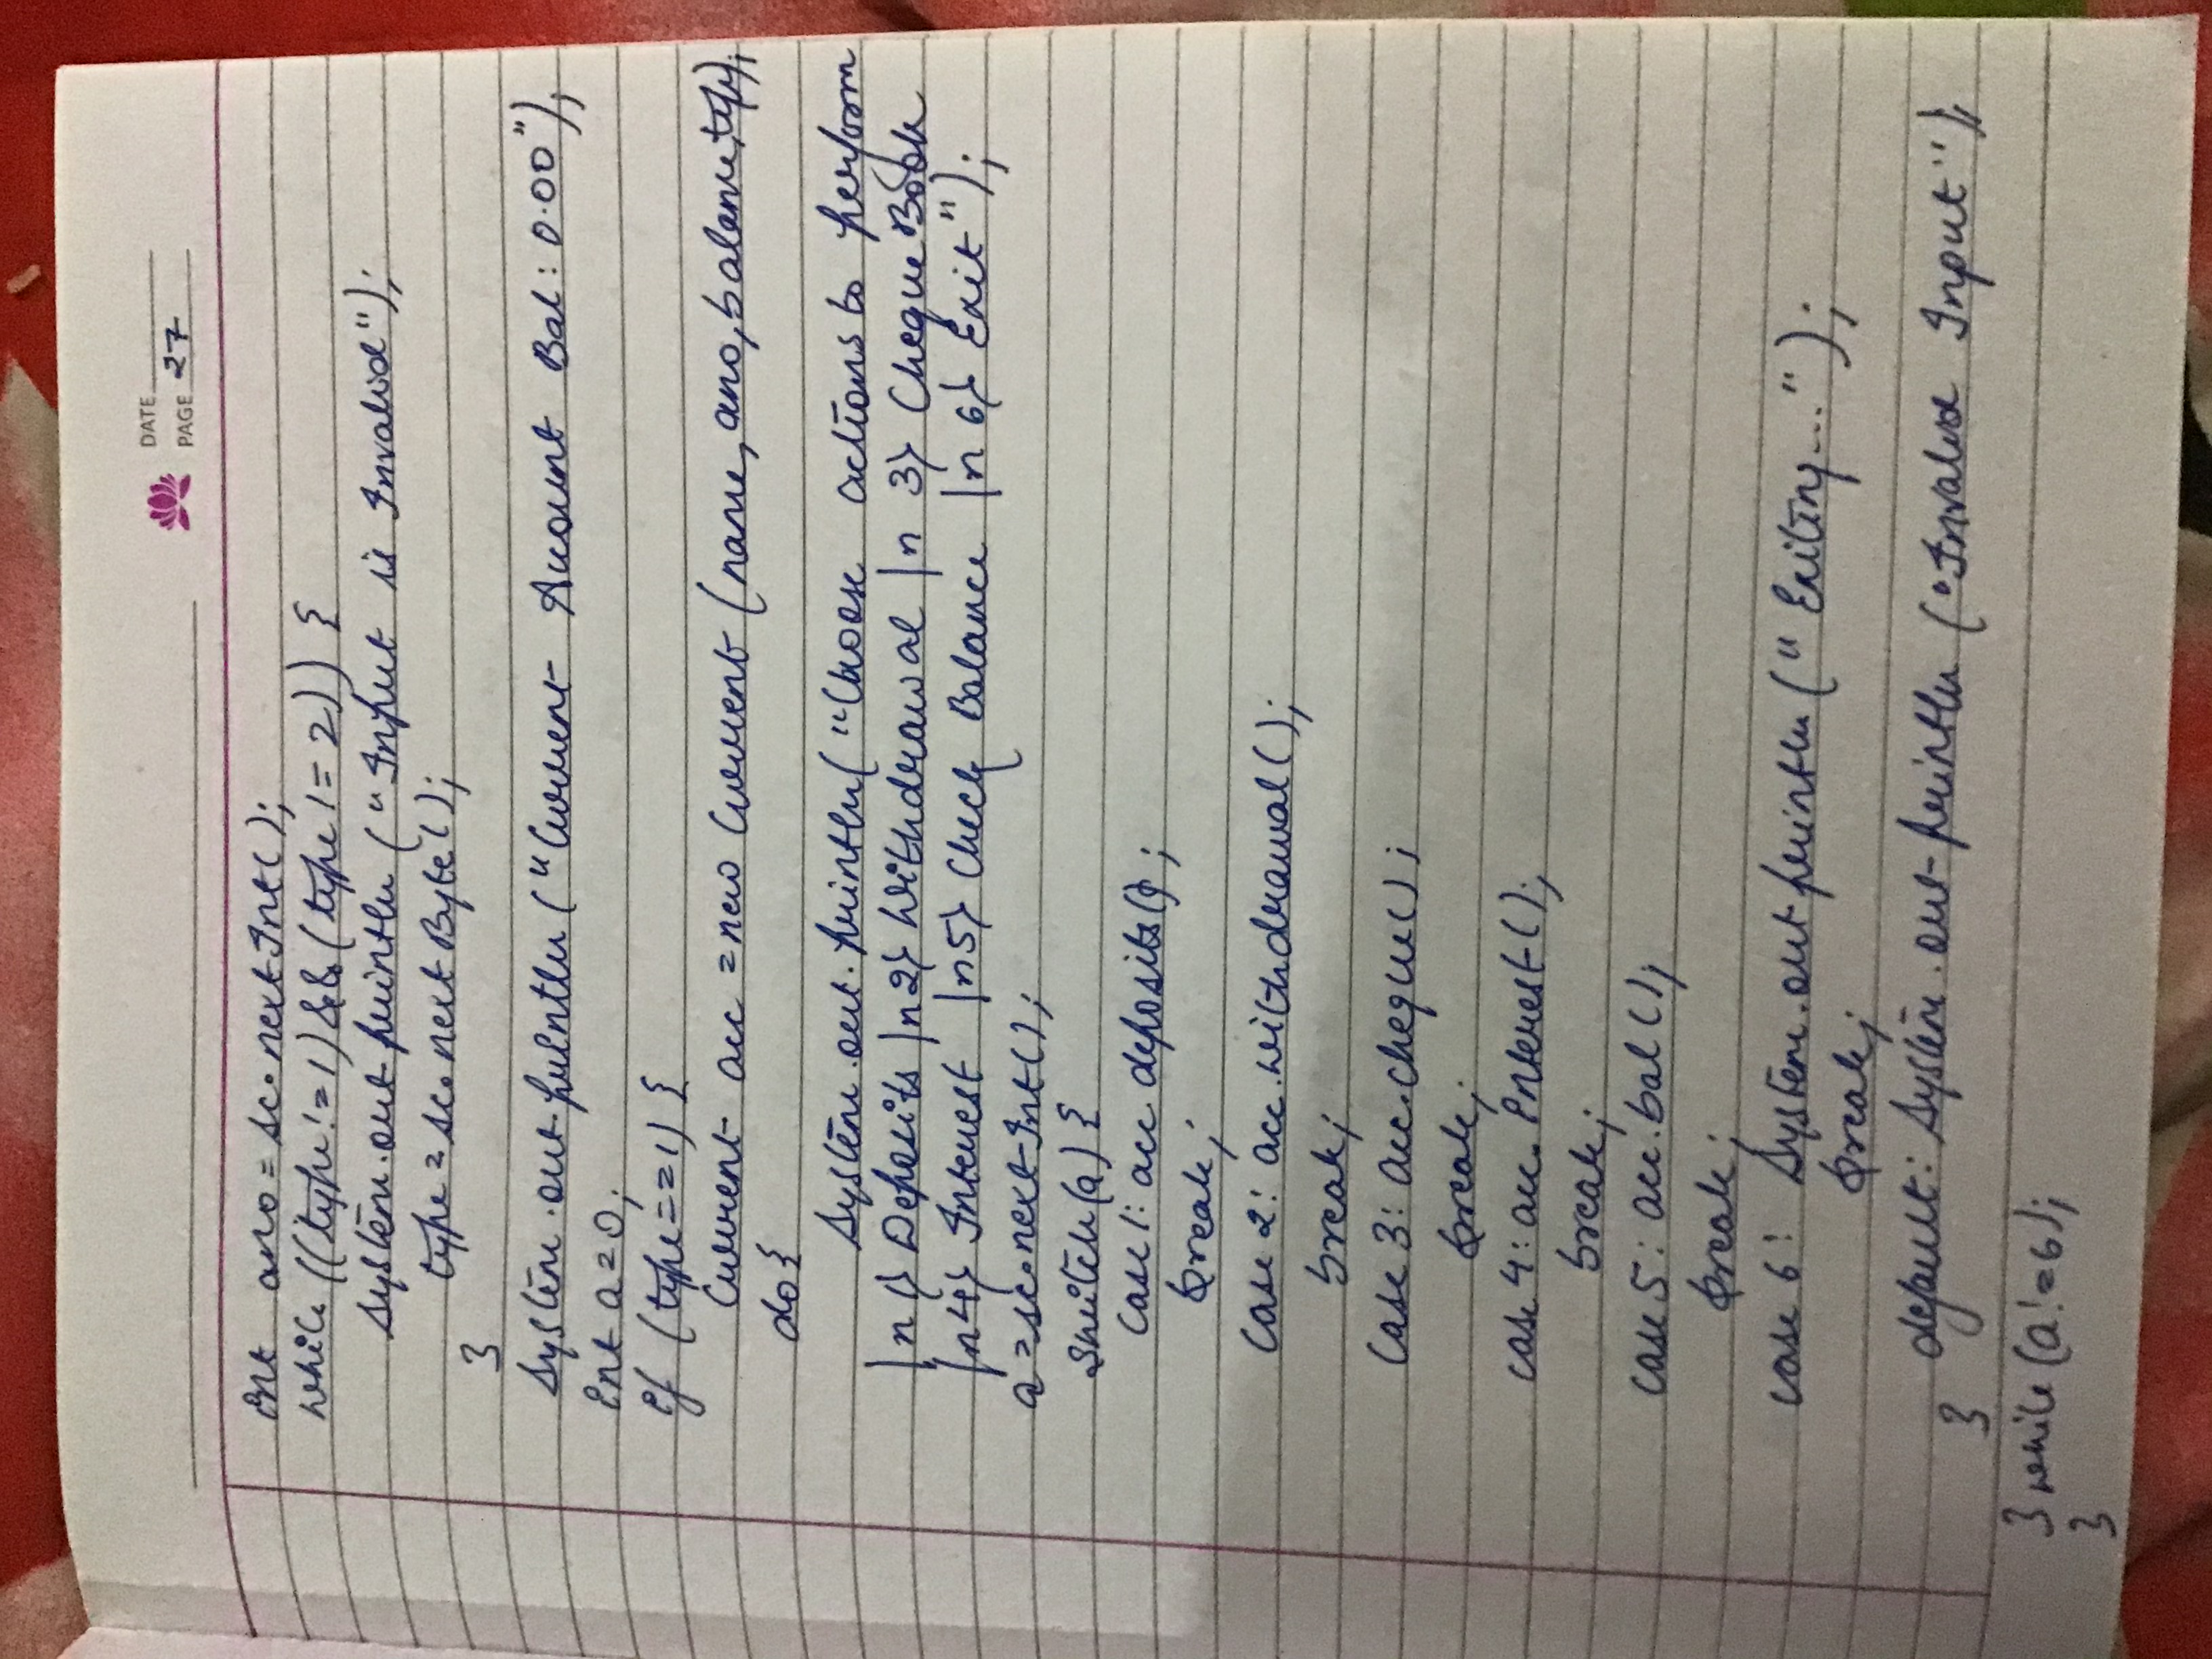 DATE
PAGE 27
int ano = sc.nextInt();
while ((type != 1) && (type != 2)) {
System.out.println ("Input is Invalid");
type = sc.nextByte();
}
System.out.println ("Current Account Bal: 0.00");
int a = 0;
if (type == 1) {
Current acc = new Current (name, ano, balance, type);
do {
System.out.println("Choose actions to perform
\n 1} Deposits \n 2} Withdrawal \n 3} Cheque Book
\n 4} Interest \n 5} Check Balance \n 6} Exit");
a = sc.nextInt();
switch(a) {
case 1: acc.deposits();
break;
case 2: acc.withdrawal();
break;
case 3: acc.cheque();
break;
case 4: acc.interest();
break;
case 5: acc.bal();
break;
case 6: System.out.println (" Exiting...");
break;
default: System.out.println ("Invalid Input");
}
} while (a != 6);
}